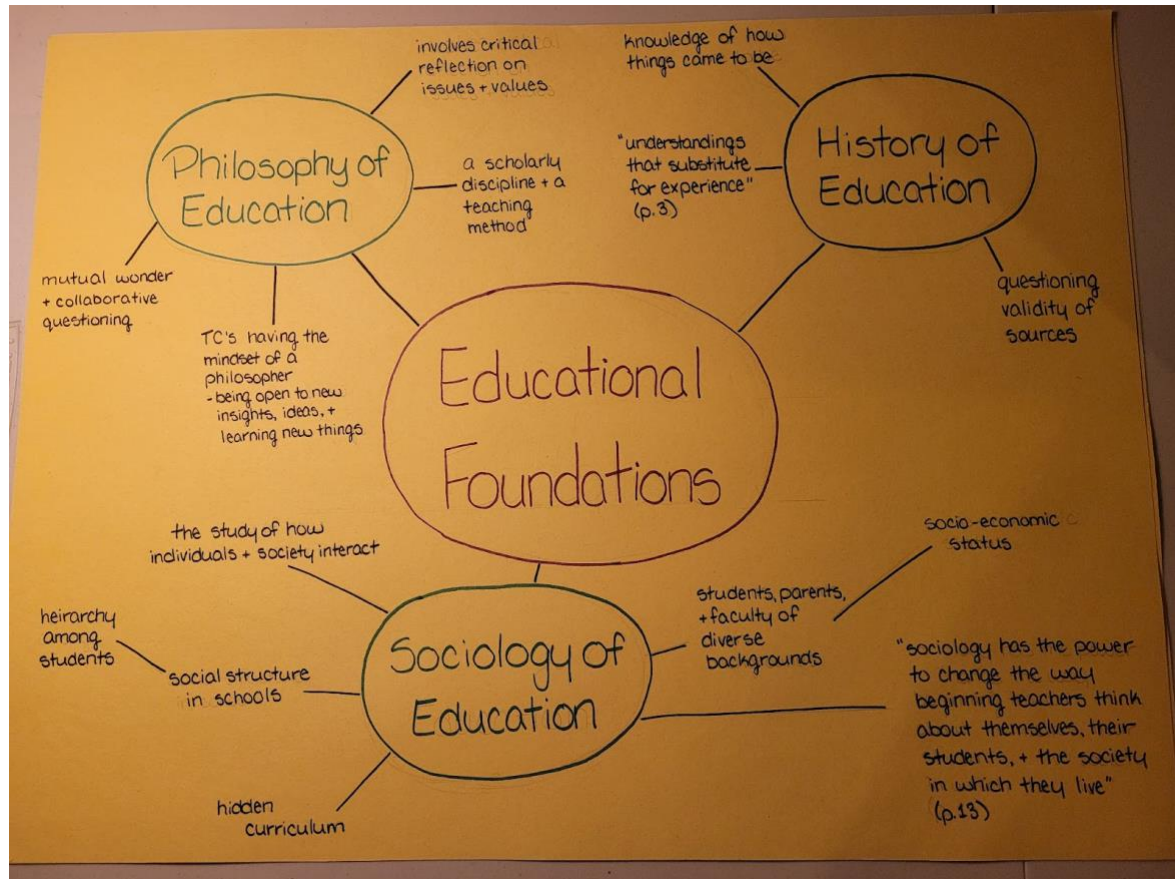 Educational
Foundations
Philosophy of
Education
involves critical
reflection on
issues + values
a scholarly
discipline + a
teaching
method
TC's having the
mindset of a
philosopher
- being open to new
insights, ideas, +
learning new things
mutual wonder
+ collaborative
questioning
History of
Education
knowledge of how
things came to be
"understandings
that substitute
for experience"
(p.3)
questioning
validity of
sources
Sociology of
Education
the study of how
individuals + society interact
social structure
in schools
heirarchy
among
students
hidden
curriculum
students, parents,
+ faculty of
diverse
backgrounds
socio-economic
status
"sociology has the power
to change the way
beginning teachers think
about themselves, their
students, + the society
in which they live"
(p.13)